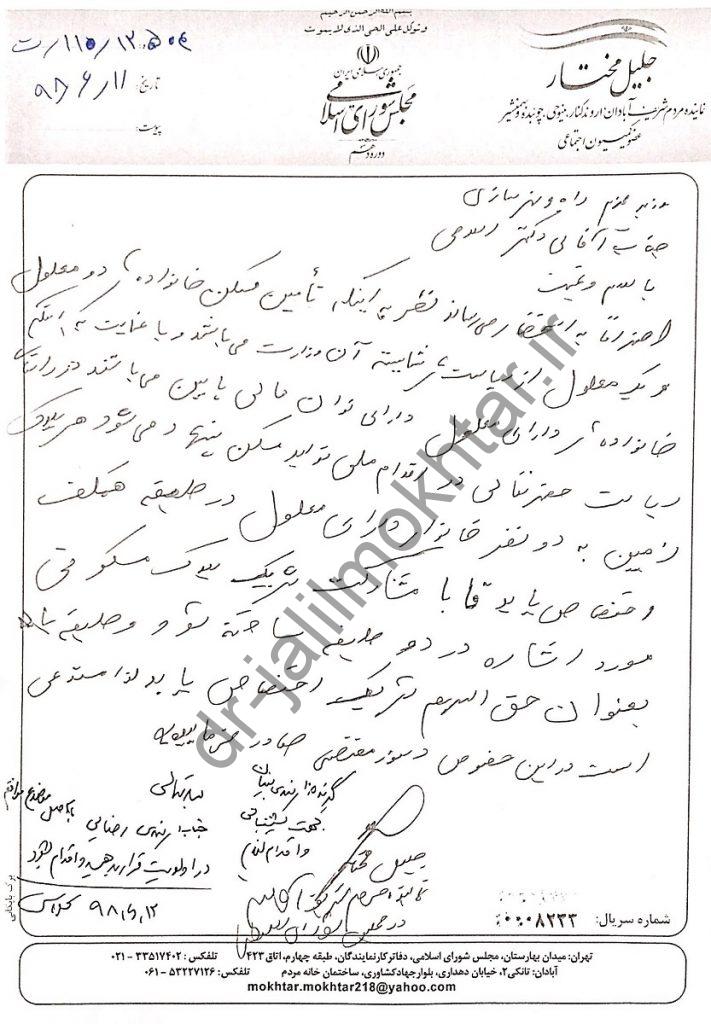 بسم الله الرحمن الرحیم
و توکل علی الحی الذی لا یموت
جمهوری اسلامی ایران
مجلس شورای اسلامی
دوره دهم
جلیل مختار
نماینده مردم شریف آبادان، اروندکنار، مینوحی، چوئبده و خسروآباد
عضو کمیسیون اجتماعی
تاریخ: ۹۸/۶/۱۱
پیوست:
وزیر محترم راه و شهرسازی
جناب آقای دکتر اسلامی
با سلام و تحیت
احتراماً به استحضار می‌رساند نظر به اینکه تأمین مسکن خانواده‌های دو معلول
و یک معلول از سیاست‌های شایسته آن وزارت می‌باشد و با عنایت به اینکه
خانواده‌های دارای معلول دارای توان مالی پایین می‌باشند در راستای
سیاست حضرتعالی در اقدام ملی تولید مسکن پیشنهاد می‌شود هر پلاک
زمین به دو نفر خانوار دارای معلول در طبقه همکف
اختصاص یابد تا با مشارکت شریک پلاک مسکونی
مورد اشاره در دو طبقه ساخته شود و طبقه بالا
بعنوان حق السهم شریک اختصاص یابد لذا مستدعی
است در این خصوص دستور مقتضی صادر فرمایید
جلیل مختار
نماینده مردم شریف آبادان
در مجلس شورای اسلامی
بسمه تعالی
جناب مهندس رضایی با اصل موضوع موافقم
در اولویت قرار بدهید و اقدام شود
۹۸،۶،۱۲
برگ بایگانی
شماره سریال: ۰۰۰۸۲۳۳
تهران: میدان بهارستان، مجلس شورای اسلامی، دفاتر کار نمایندگان، طبقه چهارم، اتاق ۴۲۳ تلفکس: ۳۳۵۱۷۴۰۲ - ۰۲۱
آبادان: تانکی۲، خیابان دهداری، بلوار جهاد کشاورزی، ساختمان خانه مردم تلفکس: ۵۳۲۲۷۱۲۶ - ۰۶۱
mokhtar.mokhtar218@yahoo.com
dr-jalilmokhtar.ir